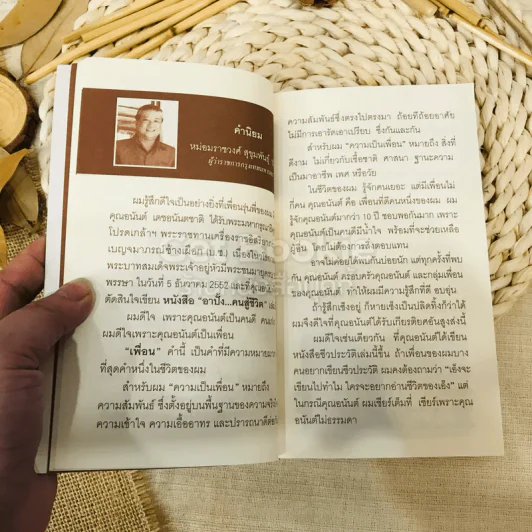 คำนิยม
หม่อมราชวงศ์ สุขุมพันธุ์
ผู้ว่าราชการกรุงเทพมหานคร
ผมรู้สึกดีใจเป็นอย่างยิ่งที่เพื่อนรุ่นพี่ของผม
คุณอนันต์ เดชอนันตชาติ ได้รับพระมหากรุณาธิคุณ
โปรดเกล้าฯ พระราชทานเครื่องราชอิสริยาภรณ์
เบญจมาภรณ์ช้างเผือก (บ.ช.) เนื่องในวัน
พระบาทสมเด็จพระเจ้าอยู่หัวมีพระชนมายุครบ
พรรษา ในวันที่ 5 ธันวาคม 2552 และที่คุณอนันต์
ตัดสินใจเขียน หนังสือ "อาปั๋ง...คนสู้ชีวิต"
ผมดีใจ เพราะคุณอนันต์เป็นคนดี
ผมดีใจเพราะคุณอนันต์เป็นเพื่อน
"เพื่อน" คำนี้ เป็นคำที่มีความหมายมาก
ที่สุดคำหนึ่งในชีวิตของผม
สำหรับผม "ความเป็นเพื่อน" หมายถึง
ความสัมพันธ์ ซึ่งตั้งอยู่บนพื้นฐานของความจริงใจ
ความเข้าใจ ความเอื้ออาทร และปรารถนาดีต่อกัน
ความสัมพันธ์ซึ่งตรงไปตรงมา ถ้อยทีถ้อยอาศัย
ไม่มีการเอารัดเอาเปรียบ ซึ่งกันและกัน
สำหรับผม "ความเป็นเพื่อน" หมายถึง สิ่งที่
ดีงาม ไม่เกี่ยวกับเชื้อชาติ ศาสนา ฐานะความ
เป็นมาอาชีพ เพศ หรือวัย
ในชีวิตของผม รู้จักคนเยอะ แต่มีเพื่อนไม่
กี่คน คุณอนันต์ คือ เพื่อนที่ดีคนหนึ่งของผม ผม
รู้จักคุณอนันต์มากว่า 10 ปี ชอบพอกันมาก เพราะ
คุณอนันต์เป็นคนดีมีน้ำใจ พร้อมที่จะช่วยเหลือ
ผู้อื่น โดยไม่ต้องการสิ่งตอบแทน
อาจไม่ค่อยได้พบกันบ่อยนัก แต่ทุกครั้งที่พบ
กัน คุณอนันต์ ครอบครัวคุณอนันต์ และกลุ่มเพื่อน
ของคุณอนันต์ ทำให้ผมมีความรู้สึกที่ดี อบอุ่น
ถ้ารู้สึกเซ็งอยู่ ก็หายเซ็งเป็นปลิดทิ้งก็ว่าได้
ผมจึงดีใจที่คุณอนันต์ได้รับเกียรติยศอันสูงส่งนี้
ผมดีใจเช่นเดียวกัน ที่คุณอนันต์ได้เขียน
หนังสือชีวประวัติเล่มนี้ขึ้น ถ้าเพื่อนของผมบาง
คนอยากเขียนชีวประวัติ ผมคงต้องถามว่า "เอ็งจะ
เขียนไปทำไม ใครจะอยากอ่านชีวิตของเอ็ง" แต่
ในกรณีคุณอนันต์ ผมเชียร์เต็มที่ เชียร์เพราะคุณ
อนันต์ไม่ธรรมดา